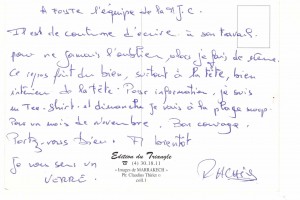 A TOUTE l'équipe de la M.J.C.
Il est de coutume d'écrire à son travail
pour ne jamais l'oublier, alors je fais de même.
Ce repos fait du bien, surtout à la tête, bien
intérieur de la tête. Pour information, je suis
en Tee-shirt. et dimanche je vais à la plage
Pour un mois de novembre. Bon courage.
Portez-vous bien. A bientôt
Je vous sers un
VERRE.
Edition du Triangle
☎ (4) 30.18.11
108 MARRAKECH